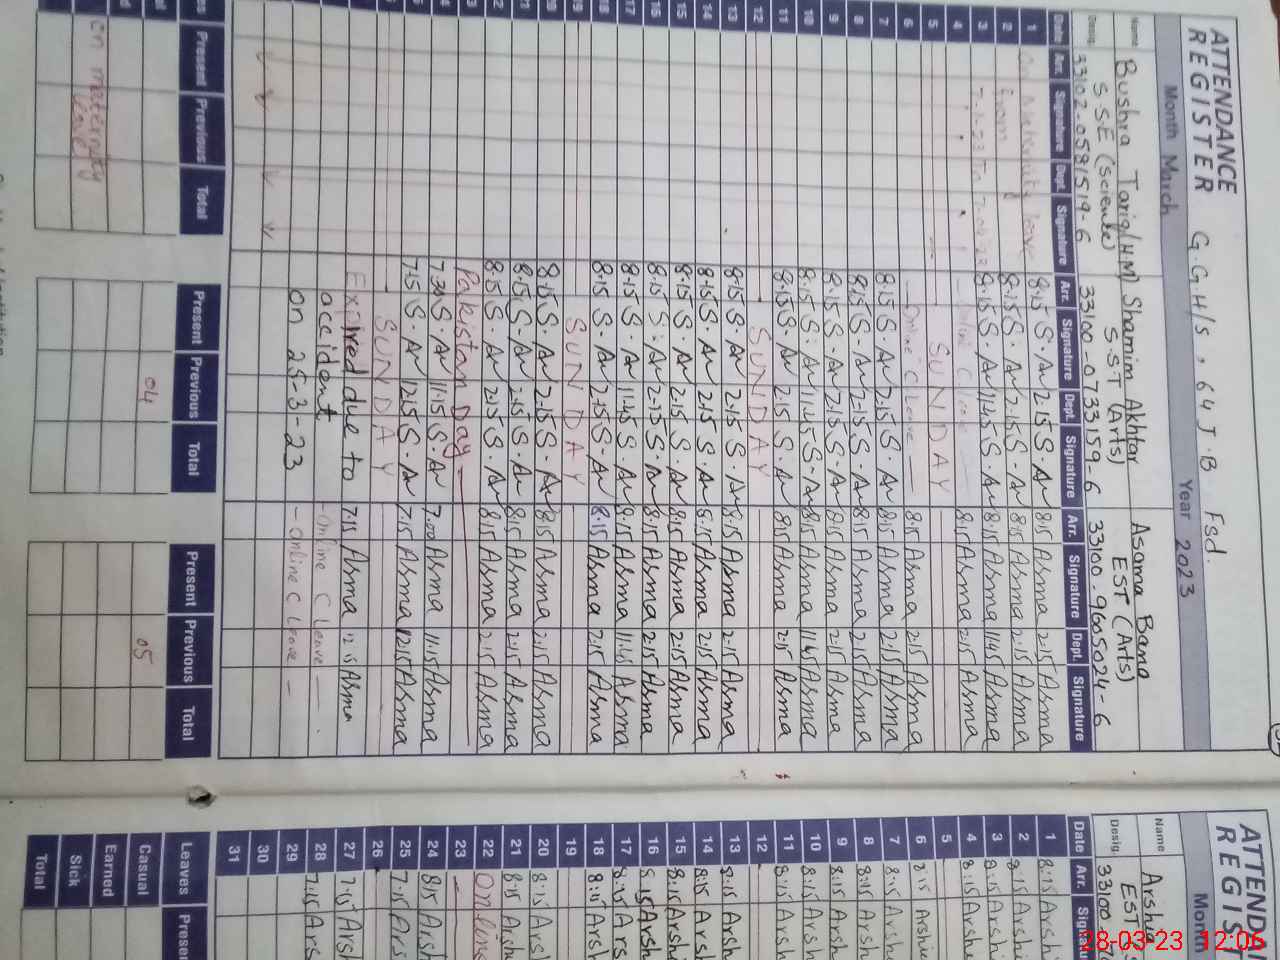 ATTENDANCE REGISTER G.G.H/s, 64 J.B Fsd.
Month March Year 2023
Name Bushra Tariq (HM) Shamim Akhtar Asama Bano
Desig. SSE (Science) SST (Arts) EST (Arts)
33102-0581519-6 33100-0733159-6 33100-9605024-6
Date Arr. Signature Dept. Signature Arr. Signature Dept. Signature Arr. Signature Dept. Signature
1 8:15 S.Ar 2:15 S.Ar 8:15 Asma 2:15 Asma
2 from 8:15 S.Ar 2:15 S.Ar 8:15 Asma 2:15 Asma
3 8:15 S.Ar 11:45 S.Ar 8:15 Asma 11:45 Asma
4 8:15 Asma 2:15 Asma
5 SUNDAY
6 8:15 Asma 2:15 Asma
7 8:15 S.Ar 2:15 S.Ar 8:15 Asma 2:15 Asma
8 8:15 S.Ar 2:15 S.Ar 8:15 Asma 2:15 Asma
9 8:15 S.Ar 2:15 S.Ar 8:15 Asma 2:15 Asma
10 8:15 S.Ar 11:45 S.Ar 8:15 Asma 11:45 Asma
11 8:15 S.Ar 2:15 S.Ar 8:15 Asma 2:15 Asma
12 SUNDAY
13 8:15 S.Ar 2:15 S.Ar 8:15 Asma 2:15 Asma
14 8:15 S.Ar 2:15 S.Ar 8:15 Asma 2:15 Asma
15 8:15 S.Ar 2:15 S.Ar 8:15 Asma 2:15 Asma
16 8:15 S.Ar 2:15 S.Ar 8:15 Asma 2:15 Asma
17 8:15 S.Ar 11:45 S.Ar 8:15 Asma 11:45 Asma
18 8:15 S.Ar 2:15 S.Ar 8:15 Asma 2:15 Asma
19 SUNDAY
20 8:15 S.Ar 2:15 S.Ar 8:15 Asma 2:15 Asma
21 8:15 S.Ar 2:15 S.Ar 8:15 Asma 2:15 Asma
22 8:15 S.Ar 2:15 S.Ar 8:15 Asma 2:15 Asma
Pakistan Day
7:30 S.Ar 11:15 S.Ar 7:00 Asma 11:15 Asma
7:15 S.Ar 12:15 S.Ar 7:15 Asma 12:15 Asma
SUNDAY
Expired due to 7:15 Asma 12:15 Asma
accident - Online C leave -
on 25-3-23 - Online C Leave -
Present Previous Total Present Previous Total Present Previous Total
04 05
on maternity leave
ATTENDA
REGIST
Month
Name Arsha
Desig EST
33100
Date Arr.
1 8:15 Arsh
2 8:15
3 8:15
4 8:15
5
6 8:15 Arshi
7 8:15
8 8:15 Arsh
9 8:15 Arsh
10 8:15 Arsh
11 8:15 Arsh
12
13 8:15 Arsh
14 8:15 Arsh
15 8:15 Arsh
16 8:15 Arsh
17 8:15 Ars
18 8:15 Arsh
19
20 8:15 Arsh
21 8:15 Arsh
22 Online
23
24 8:15 Arsh
25 7:15 Ars
26
27 7:15 Arsh
28 7:15 Ars
29
30
31
Leaves Presen
Casual
Earned
Sick
Total
28-03-23 12:06